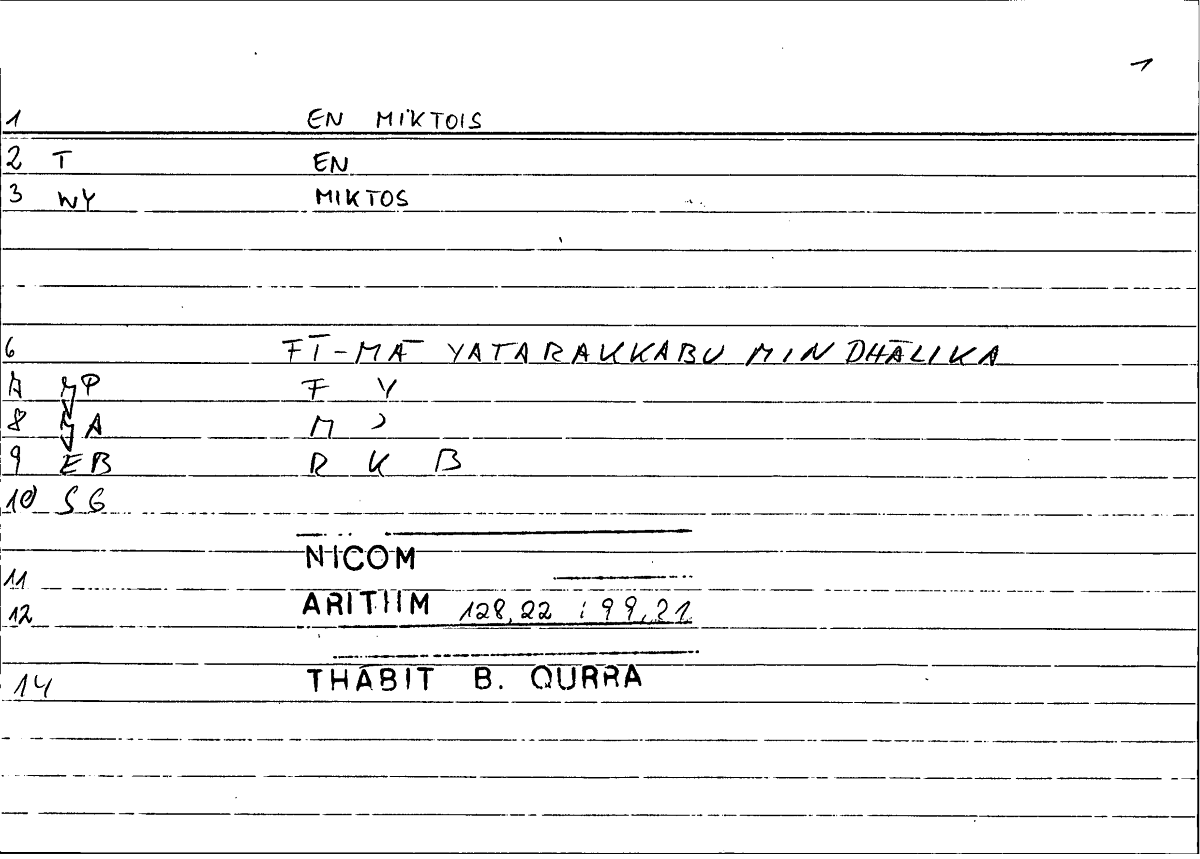 1
1 EN MIKTOIS
2 T EN
3 WY MIKTOS
6 FĪ-MĀ YATARAKKABU MIN DHĀLIKA
P F Y
8 A M ʾ
9 EB R K B
10 SG
NICOM
11
ARITHM 128,22 : 99,21
12
THĀBIT B. QURRA
14